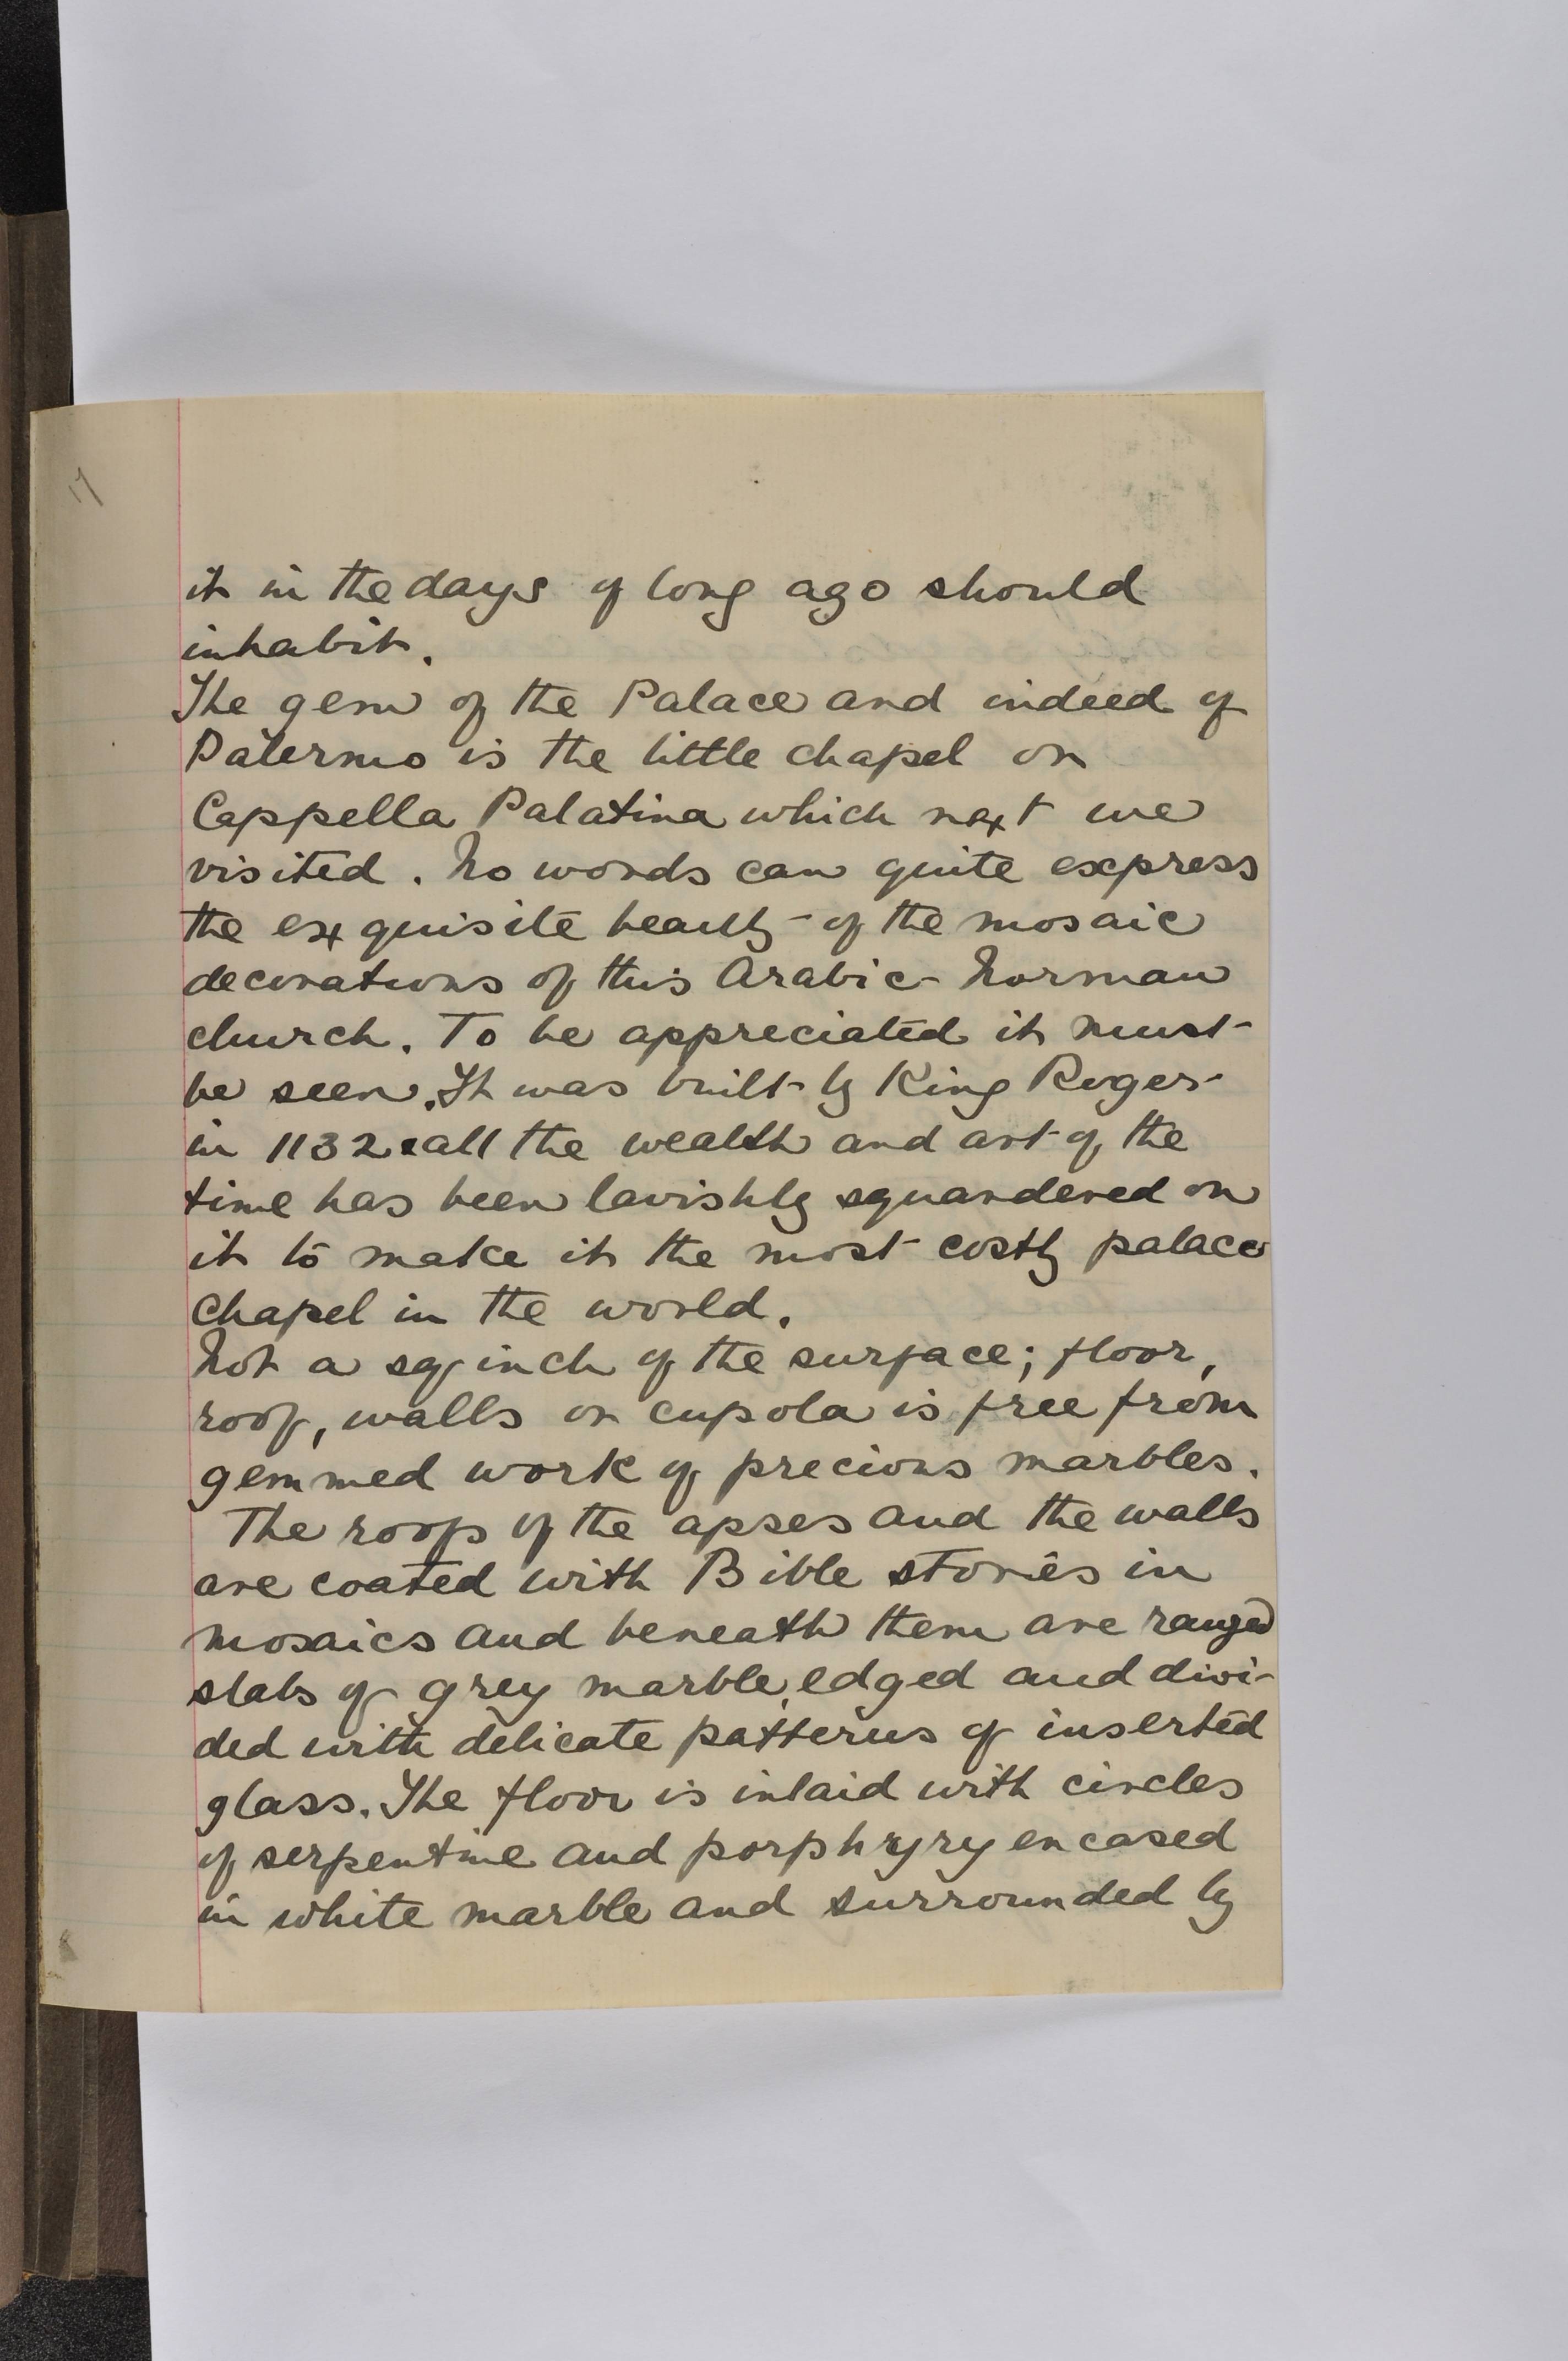 17
it in the days of long ago should
inhabit.
The gem of the Palace and indeed of
Palermo is the little chapel or
Cappella Palatina which next we
visited. No words can quite express
the exquisite beauty of the mosaic
decorations of this Arabic-Norman
church. To be appreciated it must
be seen. It was built by King Roger
in 1132 & all the wealth and art of the
time has been lavishly squandered on
it to make it the most costly palace
chapel in the world.
Not a sq inch of the surface; floor,
roof, walls or cupola is free from
gemmed work of precious marbles.
The roofs of the apses and the walls
are coated with Bible stories in
mosaics and beneath them are ranged
slabs of grey marble, edged and divi-
ded with delicate patterns of inserted
glass. The floor is inlaid with circles
of serpentine and porphyry encased
in white marble and surrounded by